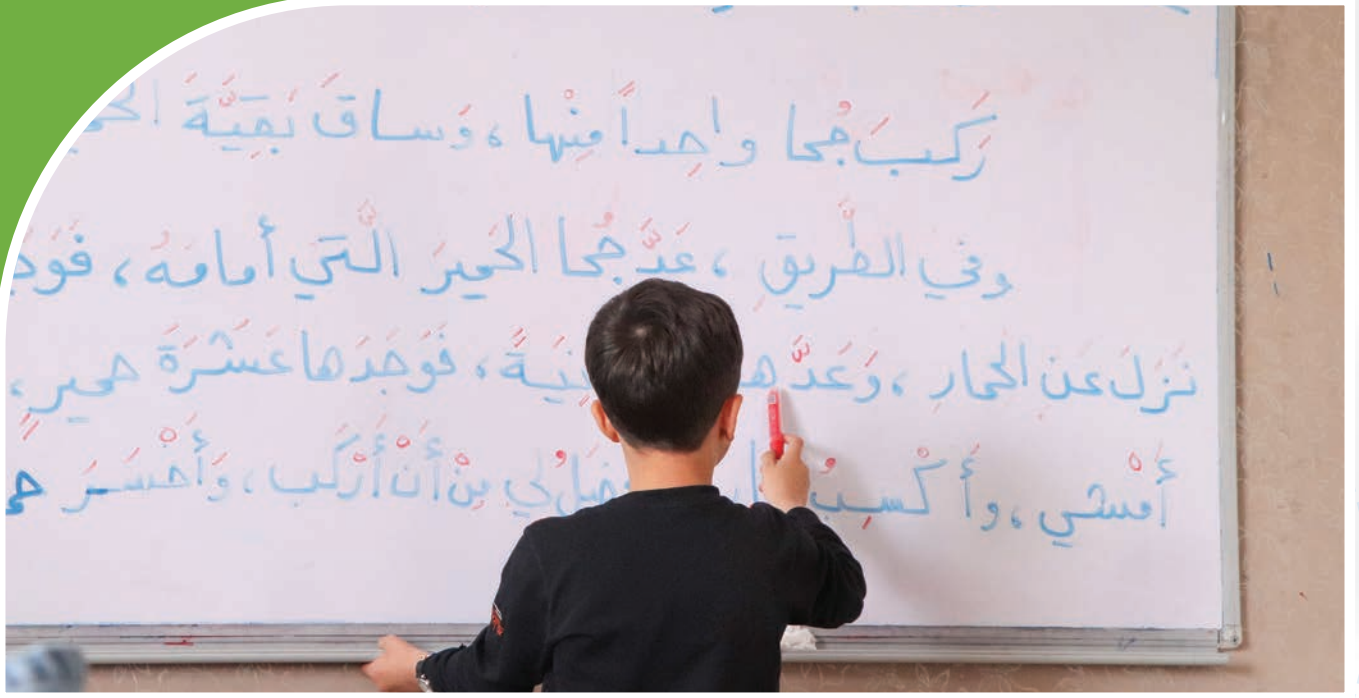 رَكِبَ جُحا واحِداً مِنْها، وَساقَ بَقِيَّةَ
وفي الطَّريقِ، عَدَّ جُحا الحَميرَ الَّتي أمامَهُ، فَوَجَ
نَزَلَ عَنِ الحمارِ، وَعَدَّها فَوَجَدَها عَشَرَةَ حميرٍ،
أَمْشي، وأَكْسِبُ لي مِنْ أَنْ أَرْكَب، وَأَخْسَرَ